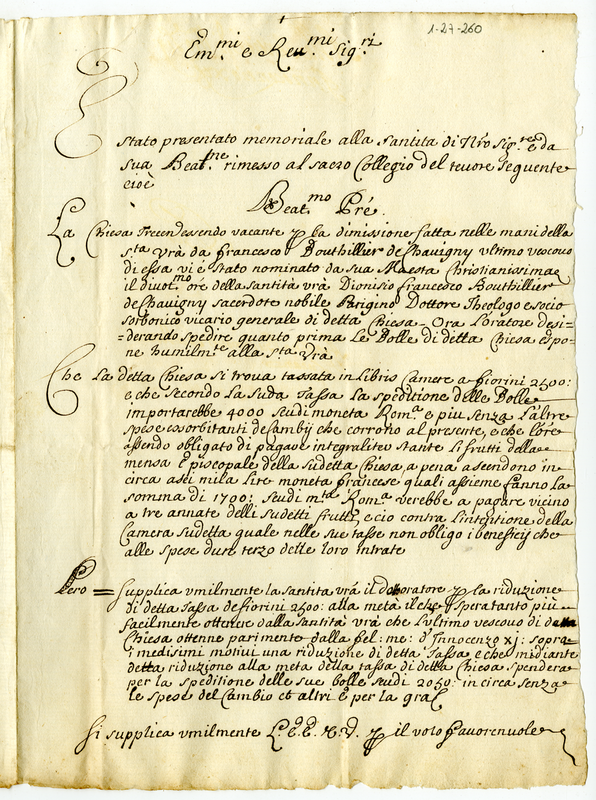 1-27-260
Em.mi e Reu.mi Sig.ri
E
stato presentato memoriale alla Santita di Nro Sig.re e da
sua Beat.ne rimesso al sacro Collegio del tenore seguente
cioè
Beat.mo Pre
La Chiesa Trecen essendo vacante p la dimissione fatta nelle mani della
s.ta vrà da francesco Bouthillier de Chauigny vltimo vescouo
di essa vi è stato nominato da sua Maesta Christianissima
il diuot.mo ore della santità vrà Dionisio francesco Bouthillier
de Chauigny sacerdote nobile Parigino Dottore Theologo e socio
sorbonico vicario generale di detta Chiesa - Ora l'oratore desi=
=derando spedire quanto prima le Bolle di detta Chiesa espo=
ne humilm.te alla s.ta vrà
Che la detta Chiesa si troua tassata in libris Camere a fiorini 2500:
e che secondo la sud.a tassa la speditione delle Bolle
importarebbe 4000 scudi moneta Rom.a e piu senza l'altre
spese essorbitanti de Cambij che corrono al presente, e che l'ore
essendo obligato di pagare integraliter stante li frutti della
mensa Episcopale della sudetta Chiesa, a pena ascendono in
circa a sei mila lire moneta francese quali assieme fanno la
somma di 1700: scudi m.ta Rom.a verebbe a pagare vicino
a tre annate delli sudetti frutti, e cio contra l'intentione della
Camera sudetta quale nelle sue tasse non obligo i beneficij che
alle spese du un terzo delle loro intrate
Pero = supplica vmilmente la santita vrà il d oratore p la riduzione
di detta tassa de fiorini 2500: alla metà il che spera tanto più
facilmente ottenere dalla santità vrà che l'vltimo vescouo di detta
Chiesa ottenne parimente dalla fel: me: d'Innocenzo xj: sopra
i medisimi motiui una riduzione di detta tassa e che mediante
detta riduzione alla meta della tassa di detta Chiesa spendera
per la speditione delle sue bolle scudi 2050: in circa senza
le spese del Cambio et altri e per la gra
Si supplica vmilmente p il voto fauoreuole